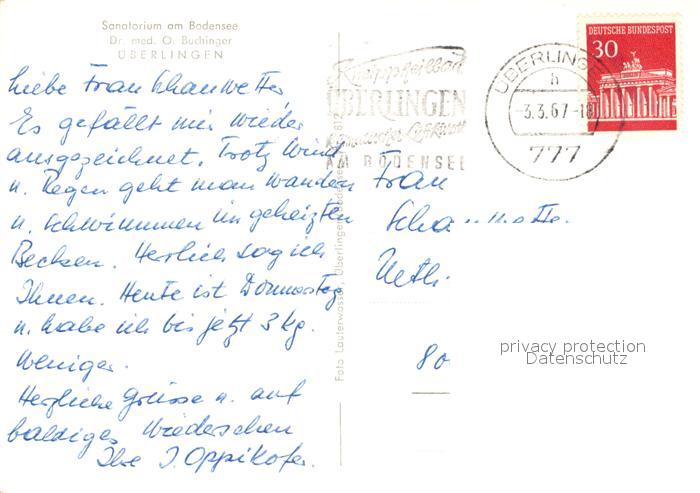 Sanatorium am Bodensee
Dr. med. O. Buchinger
ÜBERLINGEN
Liebe Frau Schauwetter
Es gefällt mir wieder
ausgezeichnet. Trotz Wind
u. Regen geht man wandern
u. schwimmen im geheizten
Becken. Herrlich sag ich
Ihnen. Heute ist Donnerstag
u. habe ich bis jetzt 3 kg.
weniger.
Herzliche Grüsse u. auf
baldiges Wiedersehen
Ihre J. Oppikofer.
Foto Lauterwasser, Überlingen/Bodensee
Kneippheilbad
ÜBERLINGEN
AM BODENSEE
ÜBERLINGEN
h
-3.3.67-18
777
DEUTSCHE BUNDESPOST
30
Frau
Scha
Uetli
80
privacy protection
Datenschutz